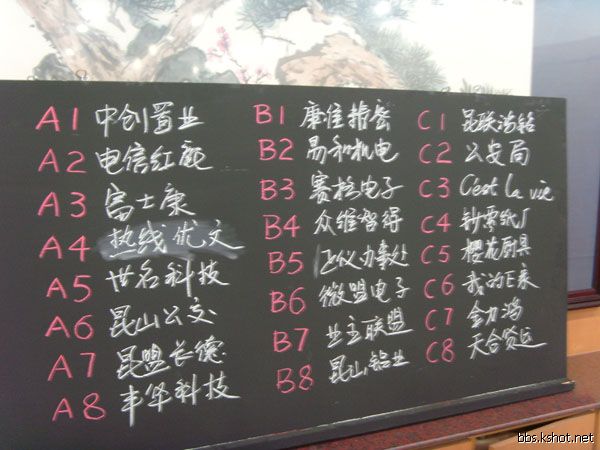 A1 中创置业
A2 电信红庭
A3 富士康
A4 热线优文
A5 世名科技
A6 昆山公交
A7 昆盟长德
A8 丰华科技
B1 康准精密
B2 易和机电
B3 赛格电子
B4 众维智得
B5 正仪办事处
B6 微盟电子
B7 业主联盟
B8 昆山铝业
C1 昆联
C2 公安局
C3 C'est la vie
C4 钞票纸厂
C5 樱花厨具
C6 我的E家
C7 金力鸿
C8 天合货运
bbs.kshot.net